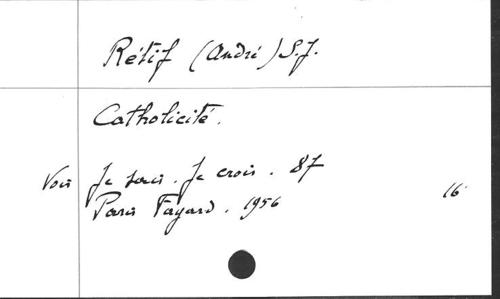 Rétif (André) S.J.
Catholicité.
Voir Je sais. Je crois. 87
Paris Fayard. 1956 16